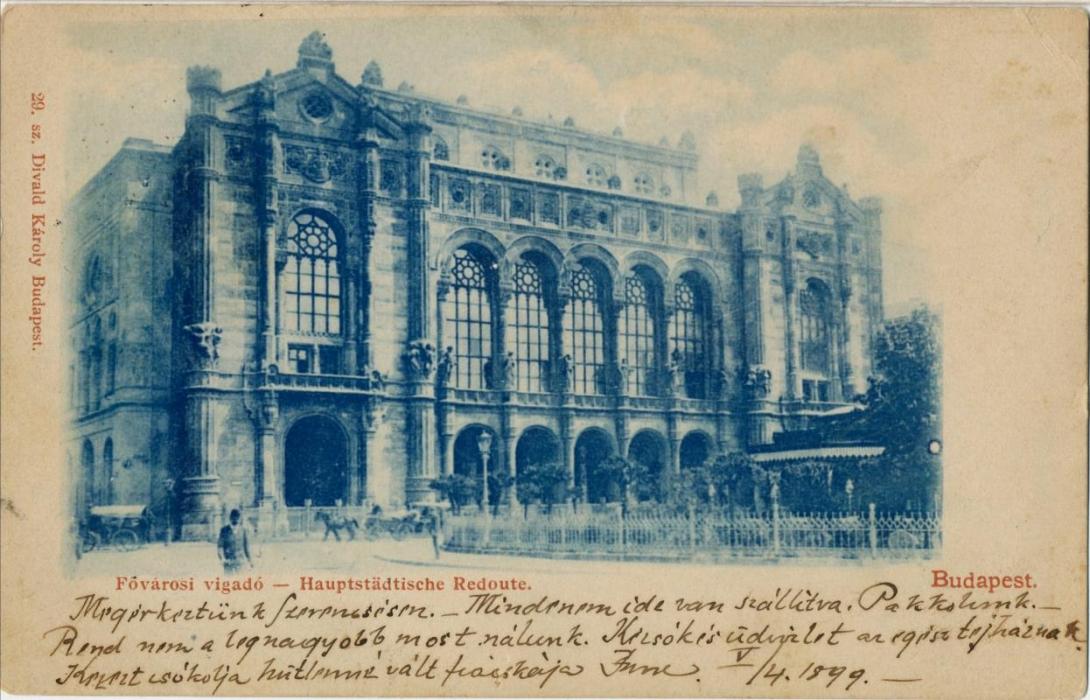 29. sz. Divald Károly Budapest.
Fővárosi vigadó — Hauptstädtische Redoute.
Budapest.
Megérkeztünk szerencsésen. — Mindenem ide van szállitva. Pakkolunk. —
Rend nem a legnagyobb most nálunk. Kézcsók és üdvözlet az egész tejháznak.
Kezeit csókolja hűtlenné vált fiacskája V/4. 1899. —